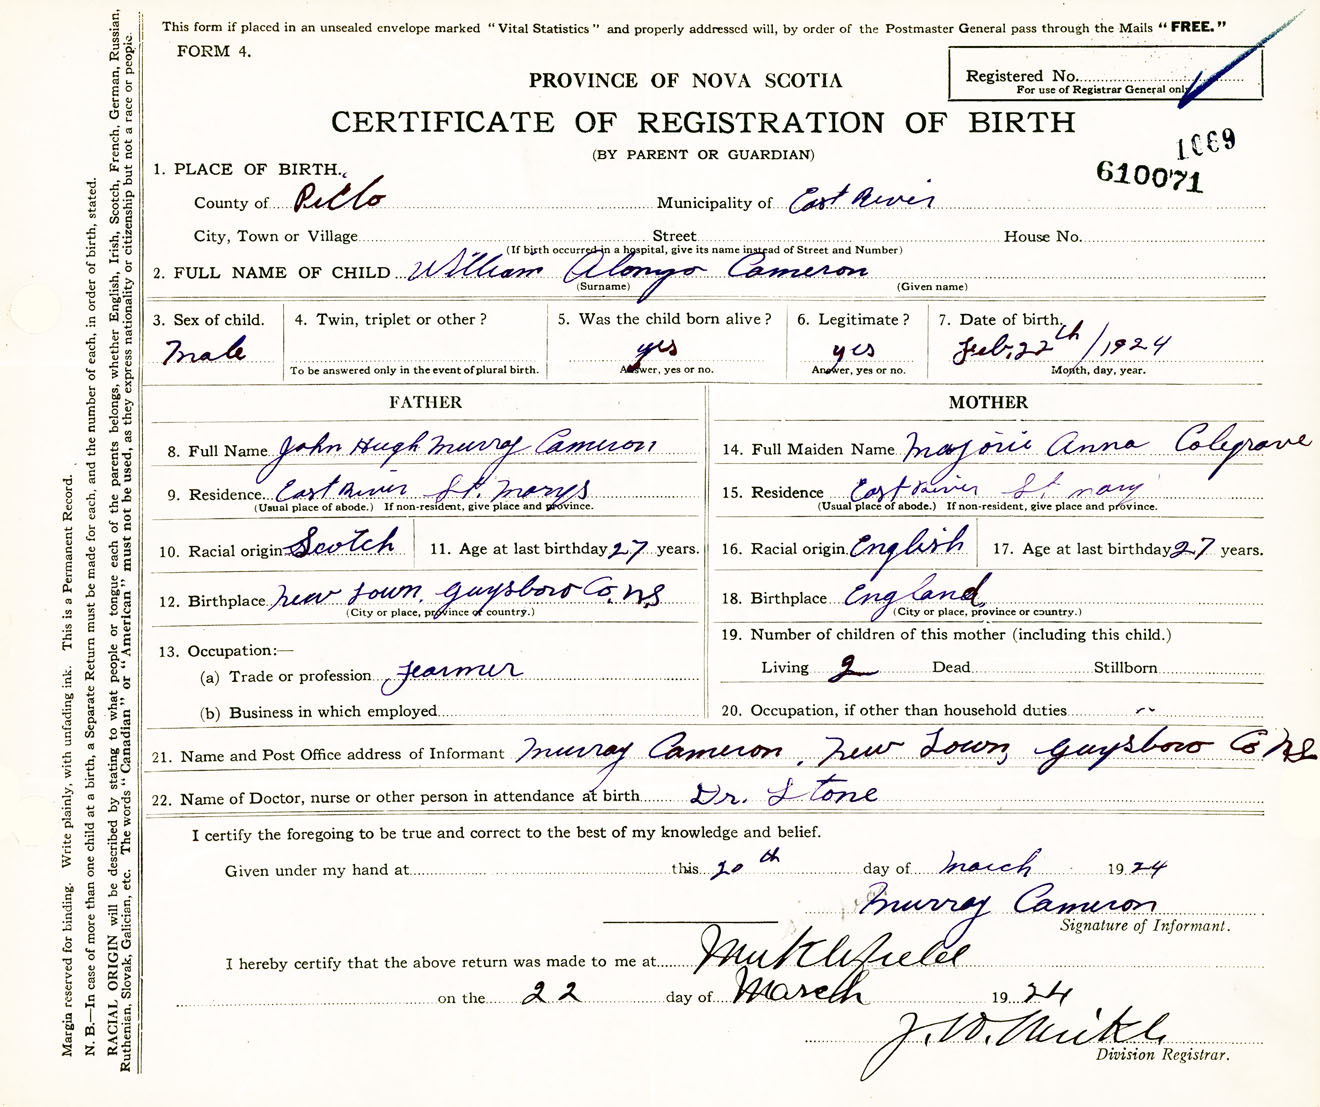 This form if placed in an unsealed envelope marked "Vital Statistics" and properly addressed will, by order of the Postmaster General pass through the Mails "FREE."
FORM 4.
PROVINCE OF NOVA SCOTIA
Registered No.
For use of Registrar General only
CERTIFICATE OF REGISTRATION OF BIRTH
(BY PARENT OR GUARDIAN)
1069
610071
1. PLACE OF BIRTH.
County of Picto Municipality of East River
City, Town or Village Street House No.
(If birth occurred in a hospital, give its name instead of Street and Number)
2. FULL NAME OF CHILD William Alonzo Cameron
(Surname) (Given name)
3. Sex of child. 4. Twin, triplet or other? 5. Was the child born alive? 6. Legitimate? 7. Date of birth.
Male yes yes Feb. 22th/1924
To be answered only in the event of plural birth. Answer, yes or no. Answer, yes or no. Month, day, year.
FATHER MOTHER
8. Full Name John Hugh Murray Cameron 14. Full Maiden Name Marjorie Anna Colegrave
9. Residence East River St. Marys 15. Residence East River St Mary
(Usual place of abode.) If non-resident, give place and province. (Usual place of abode.) If non-resident, give place and province.
10. Racial origin Scotch 11. Age at last birthday 27 years. 16. Racial origin English 17. Age at last birthday 27 years.
12. Birthplace New Town, Guysboro Co, NS 18. Birthplace England
(City or place, province or country.) (City or place, province or country.)
13. Occupation:— 19. Number of children of this mother (including this child.)
(a) Trade or profession Farmer Living 2 Dead Stillborn
(b) Business in which employed 20. Occupation, if other than household duties
21. Name and Post Office address of Informant Murray Cameron, New Town, Guysboro Co NS
22. Name of Doctor, nurse or other person in attendance at birth Dr. Stone
I certify the foregoing to be true and correct to the best of my knowledge and belief.
Given under my hand at this 20th day of March 1924
Murray Cameron
Signature of Informant.
I hereby certify that the above return was made to me at
on the 22 day of March 1924
J. W. Mikl
Division Registrar.
Margin reserved for binding. Write plainly, with unfading ink. This is a Permanent Record.
N. B.—In case of more than one child at a birth, a Separate Return must be made for each, and the number of each, in order of birth, stated.
RACIAL ORIGIN will be described by stating to what people or tongue each of the parents belongs, whether English, Irish, Scotch, French, German, Russian,
Ruthenian, Slovak, Galician, etc. The words "Canadian" or "American" must not be used, as they express nationality or citizenship but not a race or people.